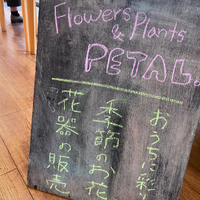 Flowers Plants
&
PETAL.
おうちに彩り
季節のお花
花器の販売